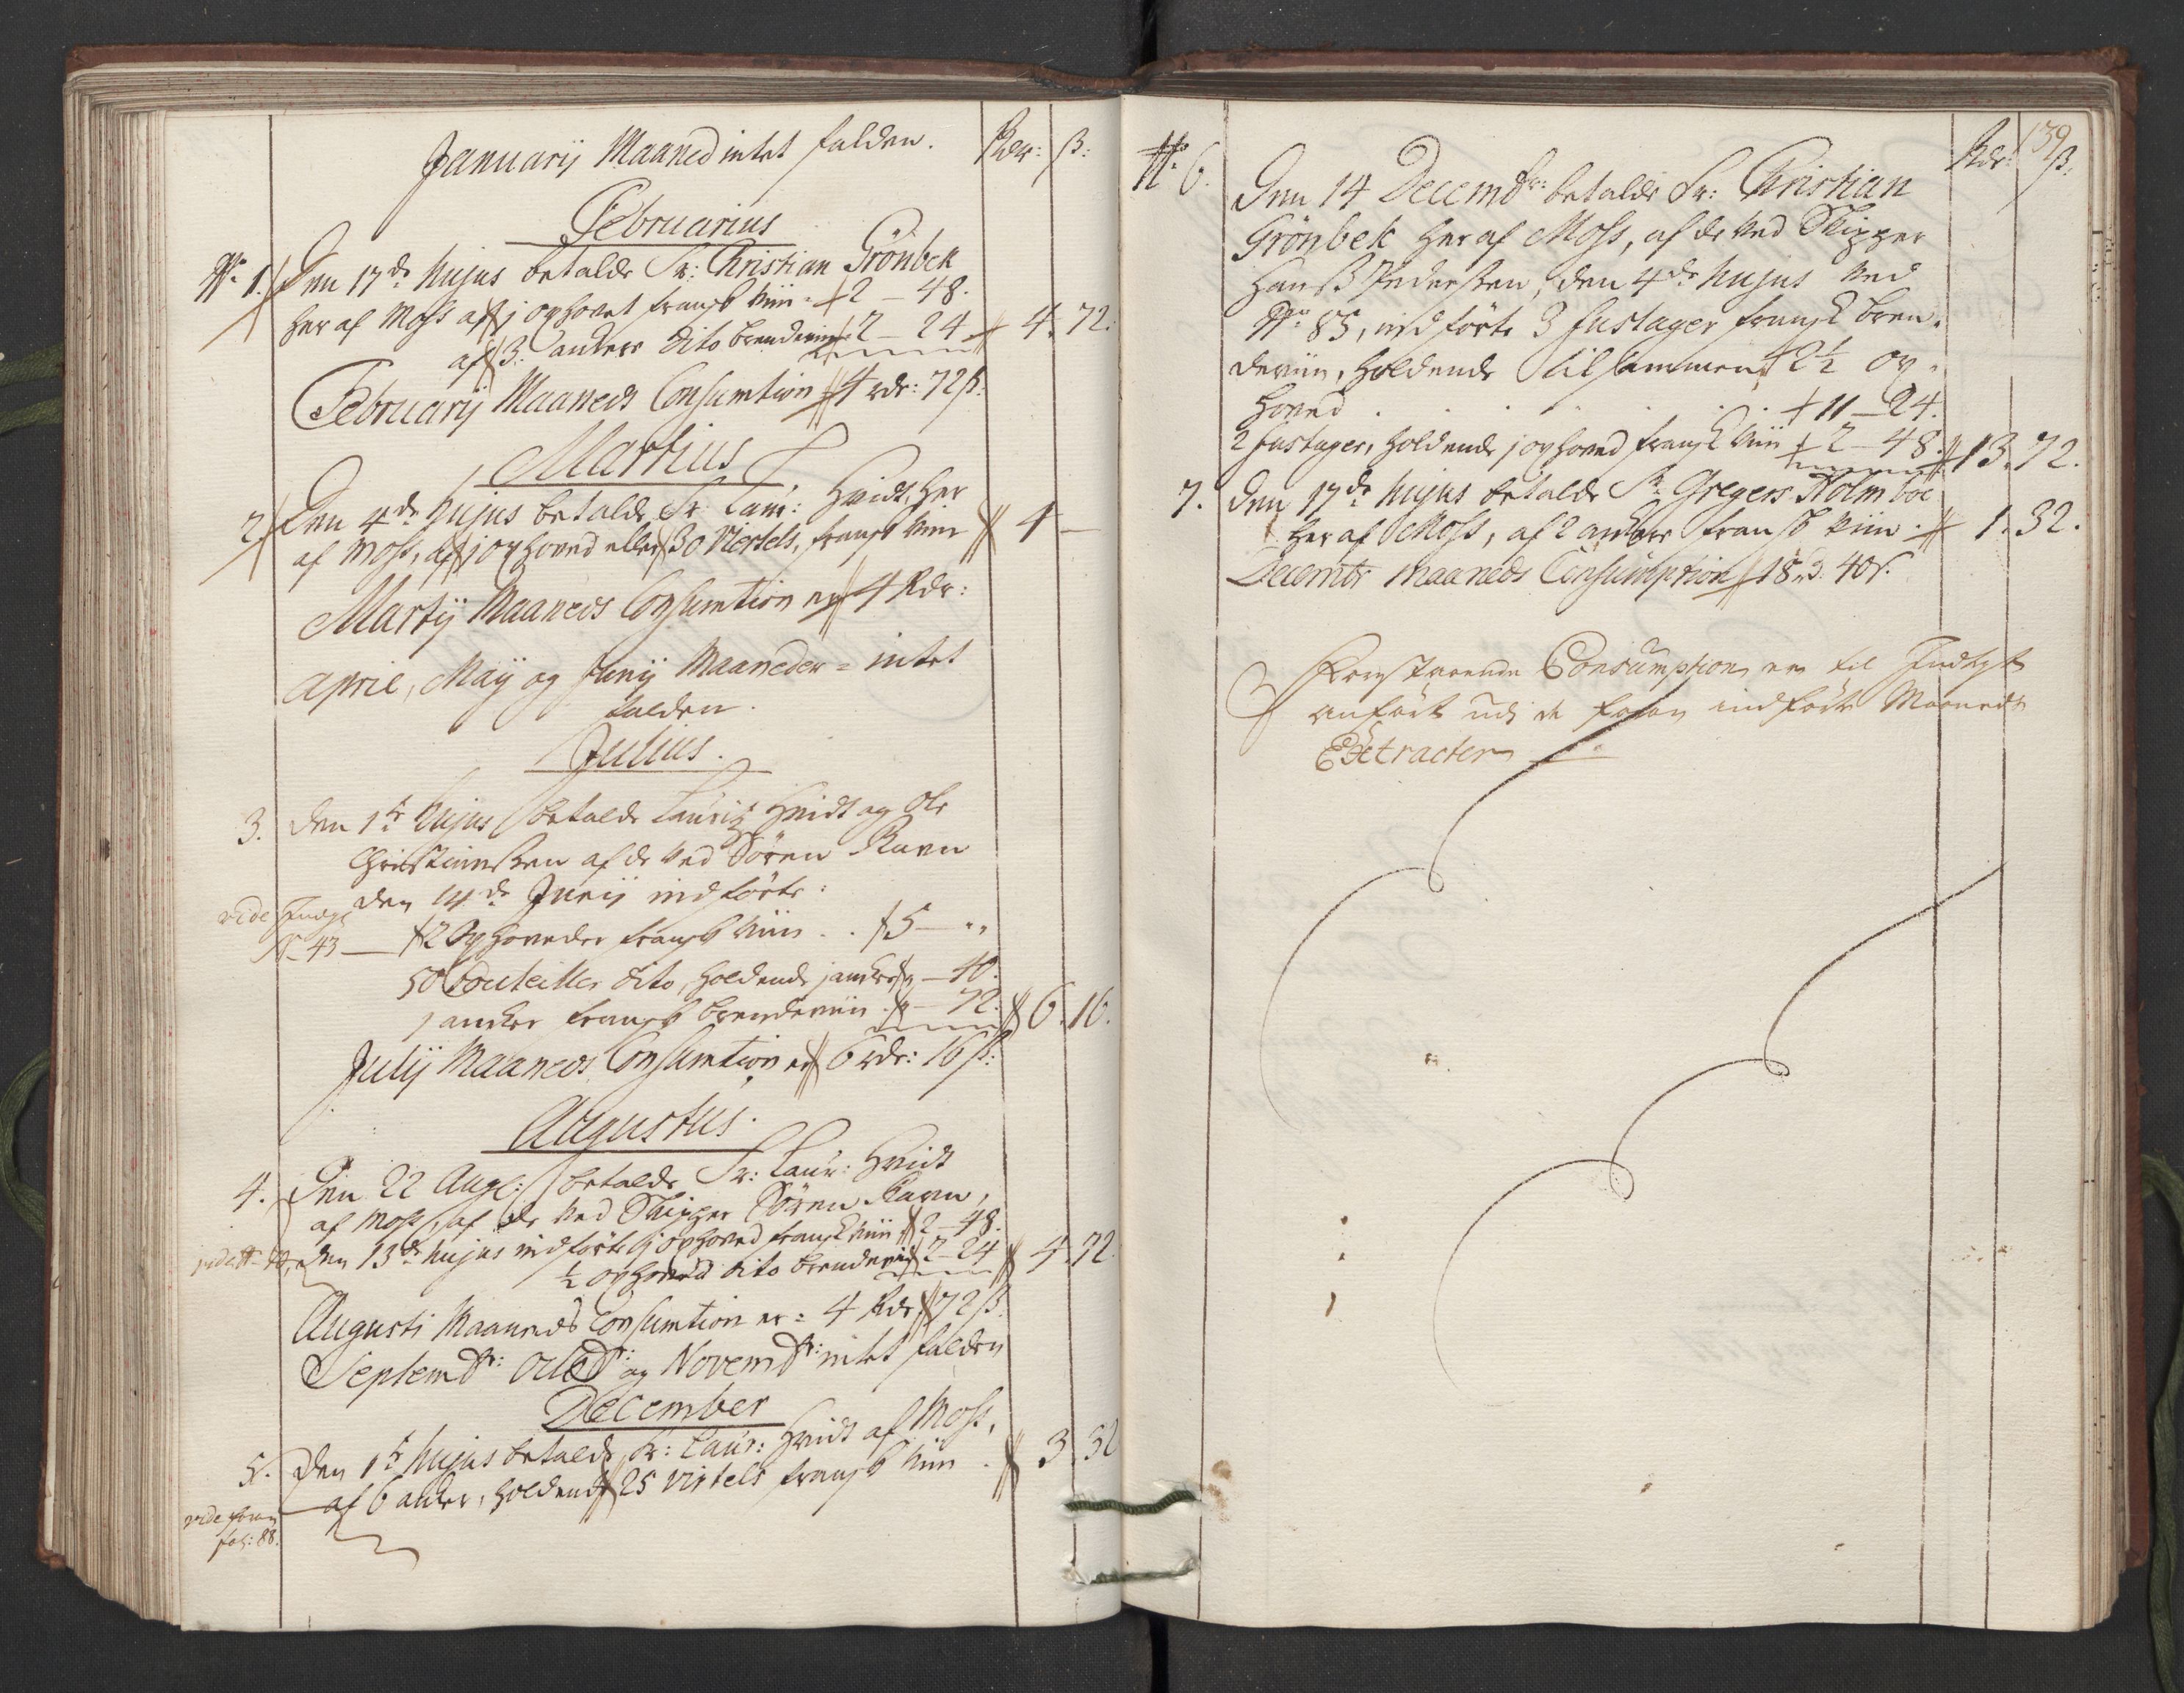 Januarij Maaned intet falden. Rdr: ß:
Februarius
No 1. Den 17de hujus betalde Sr: Christian Grönbek
her af Moss af 1 oxhovet fransk Viin - 2 - 48.
af 3 anker dito brendeviin 2 - 24 4. 72.
Februarij Maaneds Consumtion 4 rdr: 72 ß.
Martius
2. Den 4de hujus betalde Sr. Laur: Hvidt, her
af Moss, af 1 oxhoved eller 30 Viertels, fransk Viin 4 -
Martij Maaneds Consumtion er 4 Rdr:
April, Maij og Junij Maaneder = intet
falden.
Julius.
3. Den 1te hujus betalde Lauritz Hvidt og Ole
Christiansen af de Ved Sören Ravn
den 14de Junij indförte:
vide
No 43 — 2 Oxhoveder fransk Viin . . 5 - "
50 Bouteiller dito, holdende 1 anker - 40.
1 anker fransk brendeviin . - 72. 6. 16.
Julij Maaneds Consumtion er 6 rdr: 16 ß:
Augustus.
4. Den 22 Aug: betalde Sr: Laur: Hvidt
af Moss, af de Ved Skipper Sören Ravn,
den 13de hujus indförte 1 oxhoved fransk Viin 2 - 48.
½ oxhoved dito brendeviin 2 - 24 4. 72
Augusti Maaneds Consumtion er = 4 Rdr 72 ß.
Septembr: Octobr: og Novembr: intet falden
December
5. Den 1te hujus betalde Sr: Laur: Hvidt af Moss,
af 6 anker, holdende 25 Viertels fransk Viin . 3. 32
vide
fol: 88.
139
No 6. Rdr: ß.
Den 14 Decembr: betalde Sr: Christian
Grönbek her af Moss, af de Ved Skipper
Hanß Pederßen, den 4de hujus Ved
No 85, indförte 3 fustager fransk bren-
deviin, holdende tilsammen 2½ ox-
hoved . . . . . 11 - 24.
2 fustager, holdende 1 oxhoved fransk Viin 2 - 48. 13. 72.
7. Den 17de hujus betalde Sr. Gregers Holmboe
her af Moss, af 2 anker fransk Viin . 1. 32.
Decembr Maaneds Consumption 18 rd: 40 ß.
Consumption er til Indtegt
anfört udj de foran indförte Maaneds
Extracter